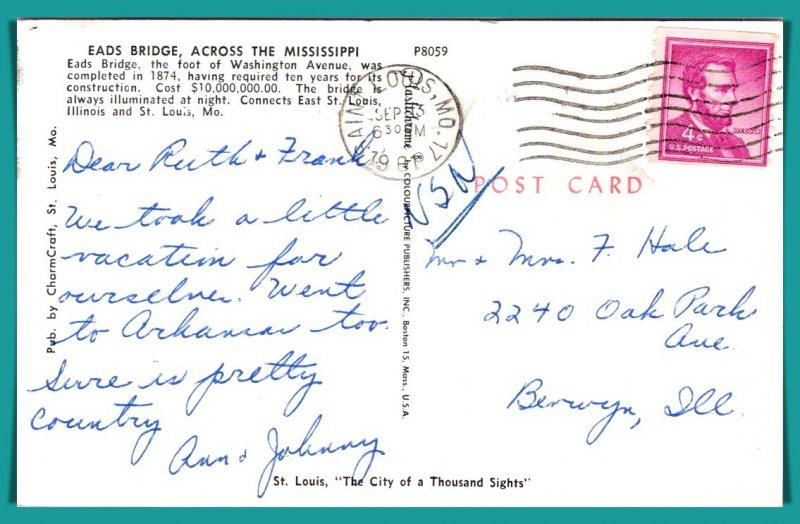 EADS BRIDGE, ACROSS THE MISSISSIPPI P8059
Eads Bridge, the foot of Washington Avenue, was
completed in 1874, having required ten years for its
construction. Cost $10,000,000.00. The bridge is
always illuminated at night. Connects East St. Louis,
Illinois and St. Louis, Mo.
Dear Ruth & Frank
We took a little
vacation for
ourselves. Went
to Arkansas too.
Sure is pretty
country
Ann & Johnny
Pub. by CharmCraft, St. Louis, Mo.
Plastichrome by COLOURPICTURE PUBLISHERS, INC., Boston 15, Mass., U.S.A.
SAINT LOUIS, MO. 17
SEP 13
6 30 PM
4¢
LINCOLN
U.S. POSTAGE
POST CARD
Mr & Mrs. F. Hale
2240 Oak Park
Ave.
Berwyn, Ill.
St. Louis, "The City of a Thousand Sights"